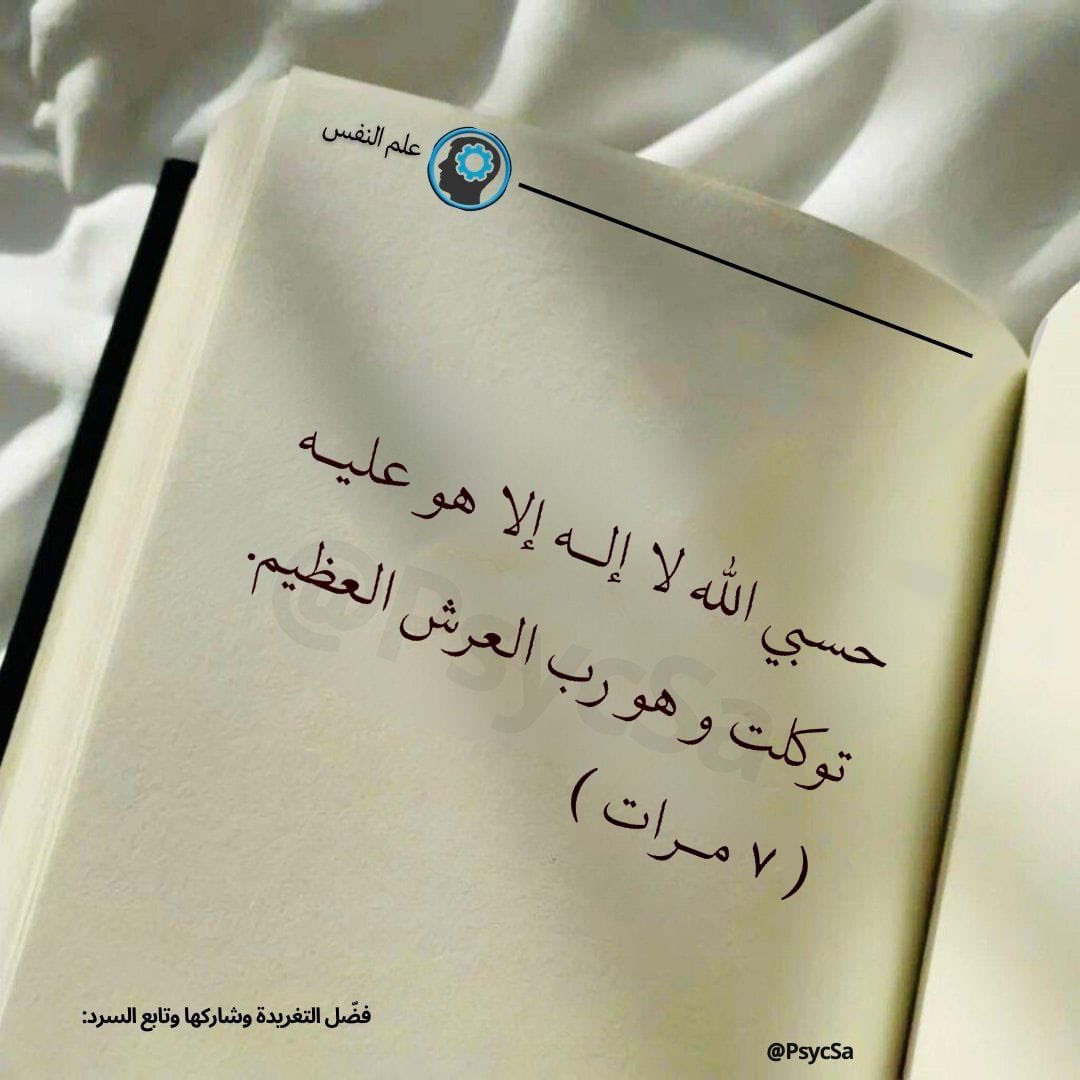 علم النفس
حسبي الله لا إلـه إلا هو عليـه
توكلت و هو رب العرش العظيم.
( ٧ مـرات )
@PsycSa
فضّل التغريدة وشاركها وتابع السرد:
@PsycSa